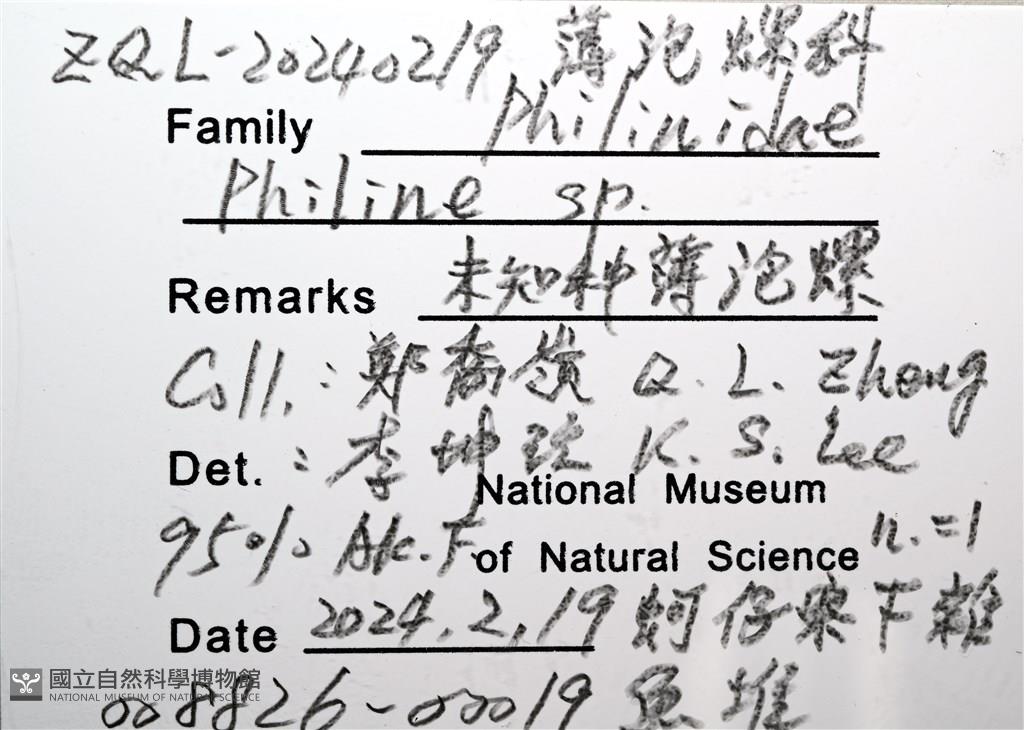 ZQL-20240219 薄泡螺科
Family Philinidae
Philine sp.
Remarks 未知种薄泡螺
Coll.: 鄭喬嶺 Q. L. Zheng
Det.: 李坤 K. S. Lee
National Museum
95% Alc. F. of Natural Science n.=1
Date 2024.2.19 蚵仔寮下雜
008826-00019 魚堆
國立自然科學博物館
NATIONAL MUSEUM OF NATURAL SCIENCE